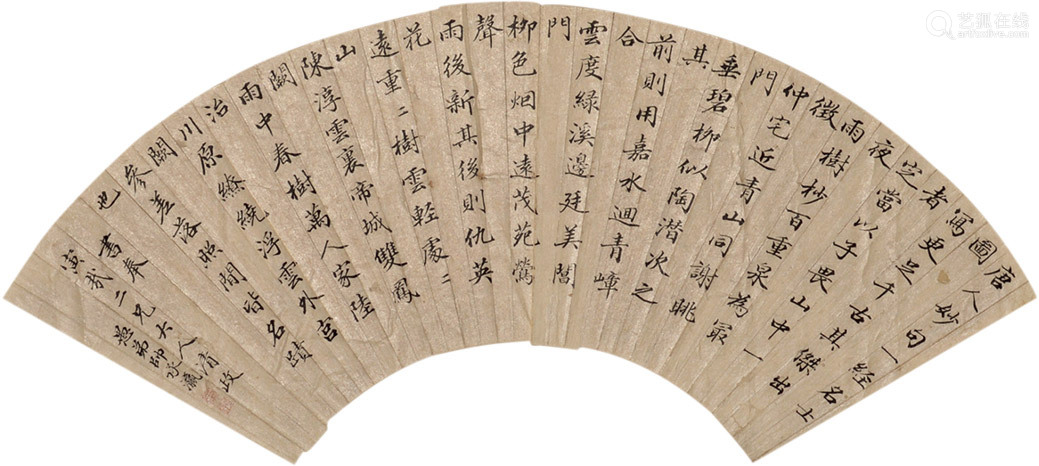 唐人妙句一經名士
圖
寫更足千古其傑出
者
定當以子畏山中一
夜
雨樹杪百重泉為最
徵
仲宅近青山同謝眺
門
垂碧柳似陶潛次之
其
前則用嘉水迴青嶂
合
雲度綠溪邊廷美閶
門
柳色烟中遠茂苑鶯
聲
雨後新其後則仇英
花
遠重〻樹雲輕處〻
山
陳淳雲裏帝城雙鳳
闕
雨中春樹萬人家陸
治
川原繚繞浮雲外宮
闕
參差落照間皆名蹟
也
書奉
二兄大人清政
愚弟帥承瀛
艺狐在线
artfoxlive.com